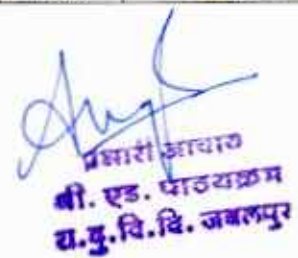 प्रभारी आचार्य
बी. एड. पाठयक्रम
रा.दु.वि.वि. जबलपुर